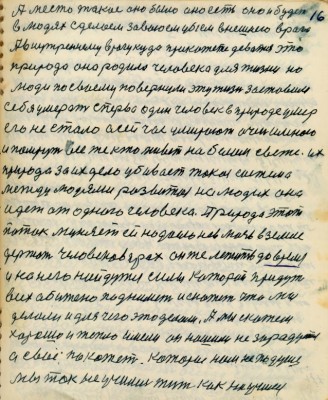 А место такое оно было оно есть оно и будет 16
в людях сделаем завоюем убьем внешнего врага
А внутреннему врагу куда прикажете деваться это
природа она родила человека для жизни но
люди по своему повернули эту жизнь заставили
себя умерать сперва один человек в природе умер
его не стало а сейчас умирают очень много
и помрут все те кто живет на белом свете. их
природа за их дело убивает такая система
между людями развитая на людях она
идет от одного человека. Природа этот
поток меняет ей надоело в земле
держать человека в прах он же лежит до время
и на него найдутся силы которые придут
всех обижено поднимет и скажет это мы
делали и для чего это делали. А мы скажем
хорошо и тепло имели он нашим не зарадуется
а свое покажет. которое нам не подуше
мы так не учились жить как научил